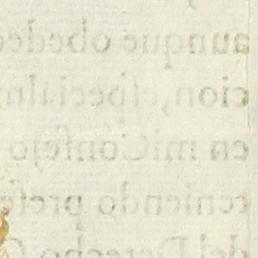 aunque obedec
cion, especialm
en mi Consejo
teniendo prese
del Derecho